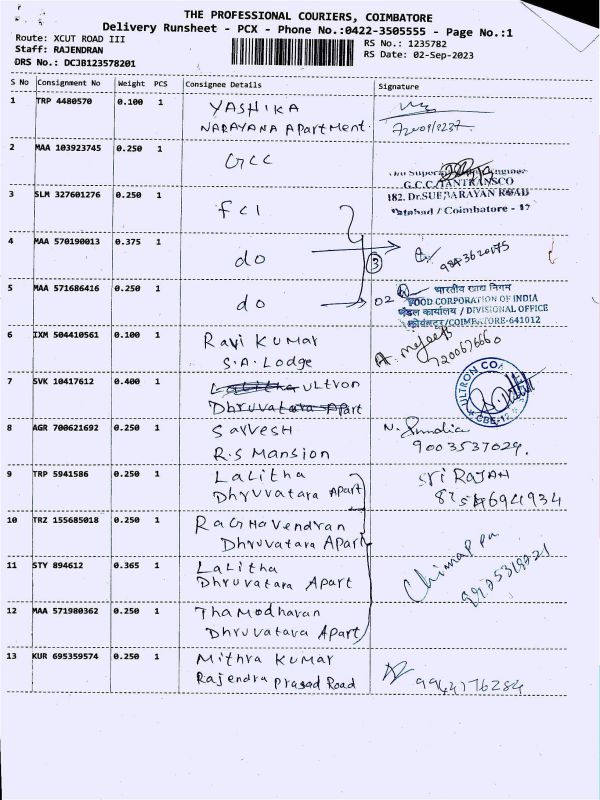 THE PROFESSIONAL COURIERS, COIMBATORE
Delivery Runsheet - PCX - Phone No.:0422-3505555 - Page No.:1
Route: XCUT ROAD III
RS No.: 1235782
Staff: RAJENDRAN
RS Date: 02-Sep-2023
DRS No.: DCJB123578201
S No Consignment No Weight PCS Consignee Details Signature
1 TRP 4480570 0.100 1 YASHIKA
NARAYANA Apartment.
2 MAA 103923745 0.250 1 GCC
G.C.C./TANTRANSCO
3 SLM 327601276 0.250 1 fcI 182. Dr.SUBBARAYAN ROAD
Tatabad / Coimbatore - 12
4 MAA 570190013 0.375 1 do
3
9843620175
5 MAA 571686416 0.250 1 do 02 भारतीय खाद्य निगम
FOOD CORPORATION OF INDIA
मंडल कार्यालय / DIVISIONAL OFFICE
कोयंबटूर/COIMBATORE-641012
6 IXM 504410561 0.100 1 Ravi Kumar
S.A. Lodge
7 SVK 10417612 0.400 1 Lalitha ULTRON
Dhruvatara Apart
ULTRON CO
CBE-12
8 AGR 700621692 0.250 1 Sarvesh
R.S Mansion 9003537029.
9 TRP 5941586 0.250 1 Lalitha Sri RAJAN
Dhruvatara Apart
10 TRZ 155685018 0.250 1 Raghavendran
Dhruvatara Apart
11 STY 894612 0.365 1 Lalitha Chinnappa
Dhruvatara Apart
12 MAA 571980362 0.250 1 Thamodharan
Dhruvatara Apart
13 KUR 695359574 0.250 1 Mithra Kumar
Rajendra Prasad Road 9944776284